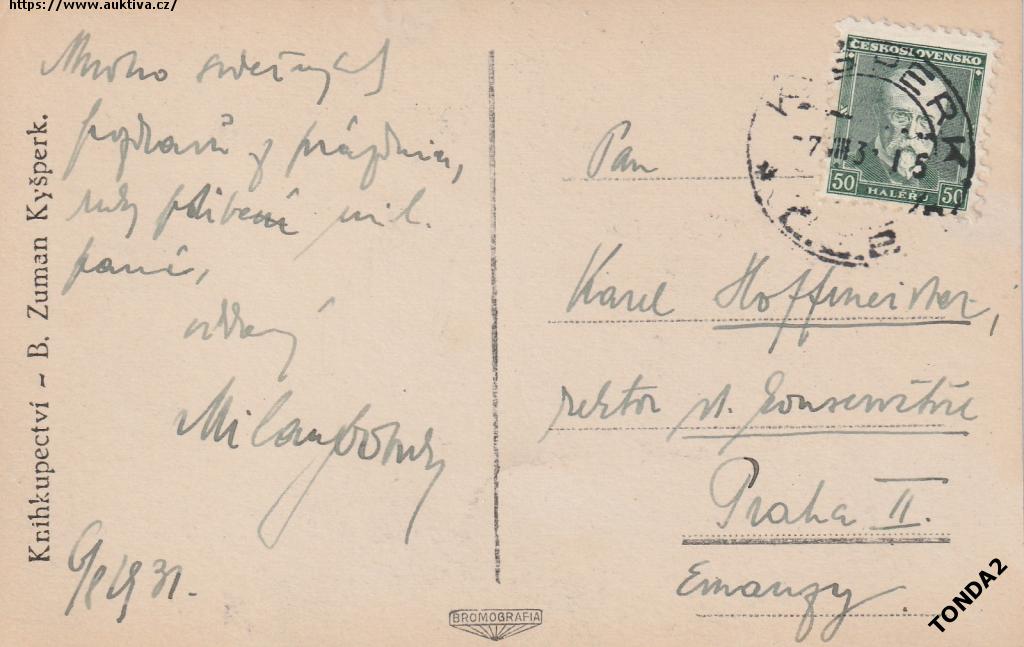 https://www.auktiva.cz/
Mnoho srdečných
pozdravů z prázdnin,
ruky políbení mil.
paní,
oddaný
Milan
6/8 1931.
Knihkupectví ~ B. Zuman Kyšperk.
BROMOGRAFIA
ČESKOSLOVENSKO
50 HALÉŘŮ 50
KYŠPERK
-7.VIII.31
* Č.S.
Pan
Karel Hoffmeister,
rektor st. konservatoře
Praha II.
Emauzy.
TONDA2